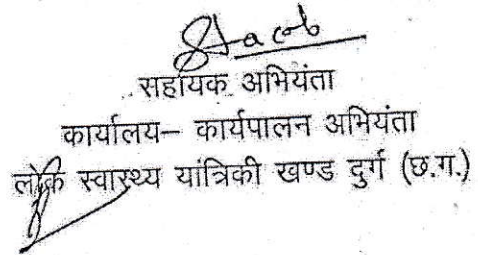 सहायक अभियंता
कार्यालय– कार्यपालन अभियंता
लोक स्वास्थ्य यांत्रिकी खण्ड दुर्ग (छ.ग.)